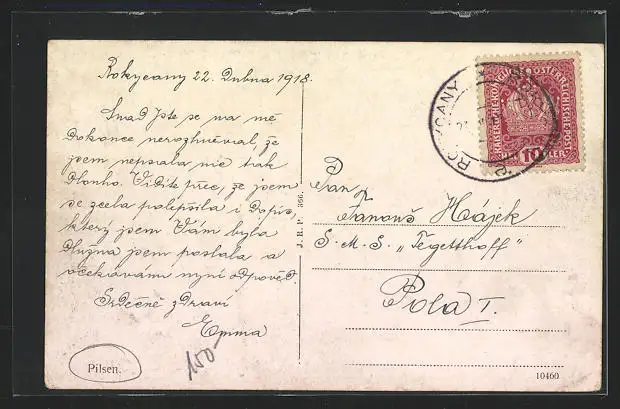 Rokycany 22. Dubna 1918.
Snad jste se na mě
Dokonce nerozhněval, že
jsem nepsala nic tak
Dlouho. Vidíte přec, že jsem
se zcela polepšila i Dopis,
který jsem Vám byla
Dlužna jsem poslala a
očekávám nyní odpověď.
Srdečně zdraví
Emma
Pilsen.
100
J. R. P. 366.
ROKYCANY
KAISERLICHE KÖNIGLICHE ÖSTERREICHISCHE POST
10
HELLER
Pan
Janouš Hájek
S. M. S. „Tegetthoff"
Pola I.
10460